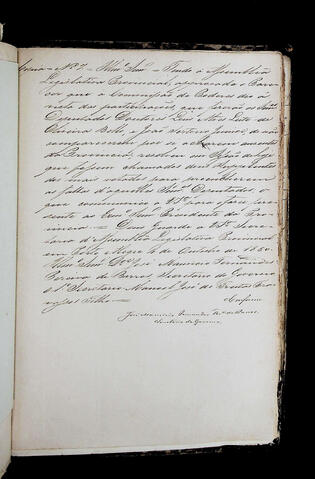 Copia = Nº 7. = Illmo Snr. = Tendo a Assembléa
Legislativa Provincial, approvado o Pare-
cer que a Commissão de Poderes deo á
vista das participações, que fizerão os Snrs
Deputados Doutores Luis Alves Leite de
Oliveira Bello, e João, de não
comparecerem por se acharem ausentes
da Provincia, resolveo em de hoje
que fossem chamados dous Supplentes
dos mais votados para preencherem
as faltas d'aquelles Snrs Deputados: o
que communico a VSa. para fazer pre-
sente ao Exmo Snr Presidente da Pro-
vincia. = Deos Guarde a VSa. Secre-
taria d'Assembléa Legislativa Provincial
em Porto Alegre 4 de Outubro de 1850.
Illmo Snr. Dor. José Mauricio Fernandes
Pereira de Barros, Secretario do Governo
o 1º Secretario Manoel José de Freitas Tra-
vassos Filho =
Conforme
José Mauricio Fernandes Pra. de Barros
Secretario do Governo